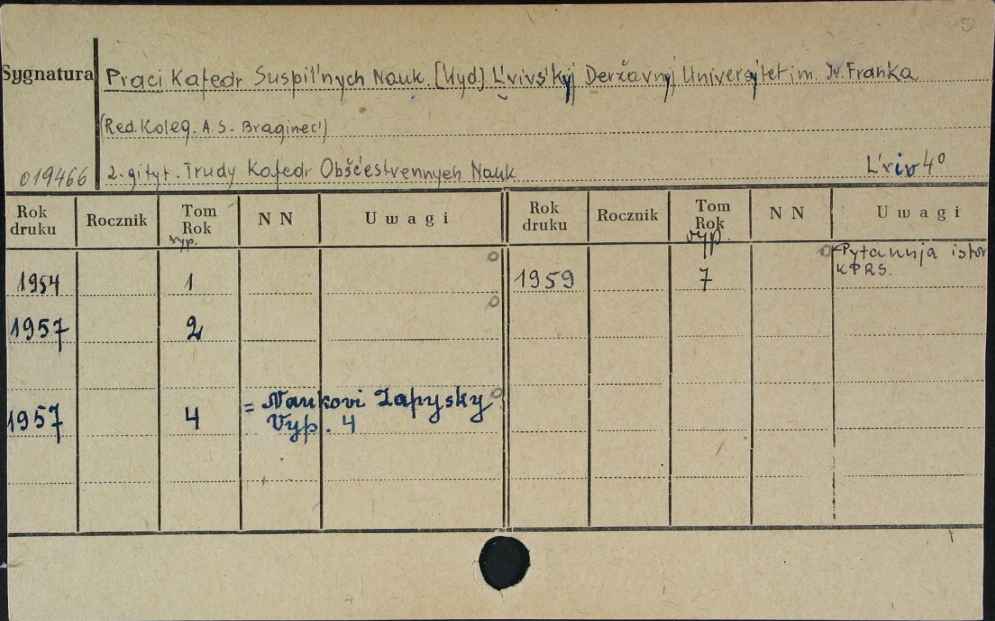 Sygnatura Praci Kafedr Suspil'nych Nauk. [Vyd] L'vivs'kyj Deržavnyj Universytet im. Iv. Franka
(Red. Koleg. A. S. Braginec')
019466 2. gi tyt. Trudy Kafedr Obščestvennych Nauk L'viv 4°
Rok druku Rocznik Tom Rok vyp. N N Uwagi Rok druku Rocznik Tom Rok vyp. N N Uwagi
1954 1 1959 7 Pytannja istor KPRS.
1957 2
1957 4 = Naukovi Zapysky
Vyp. 4